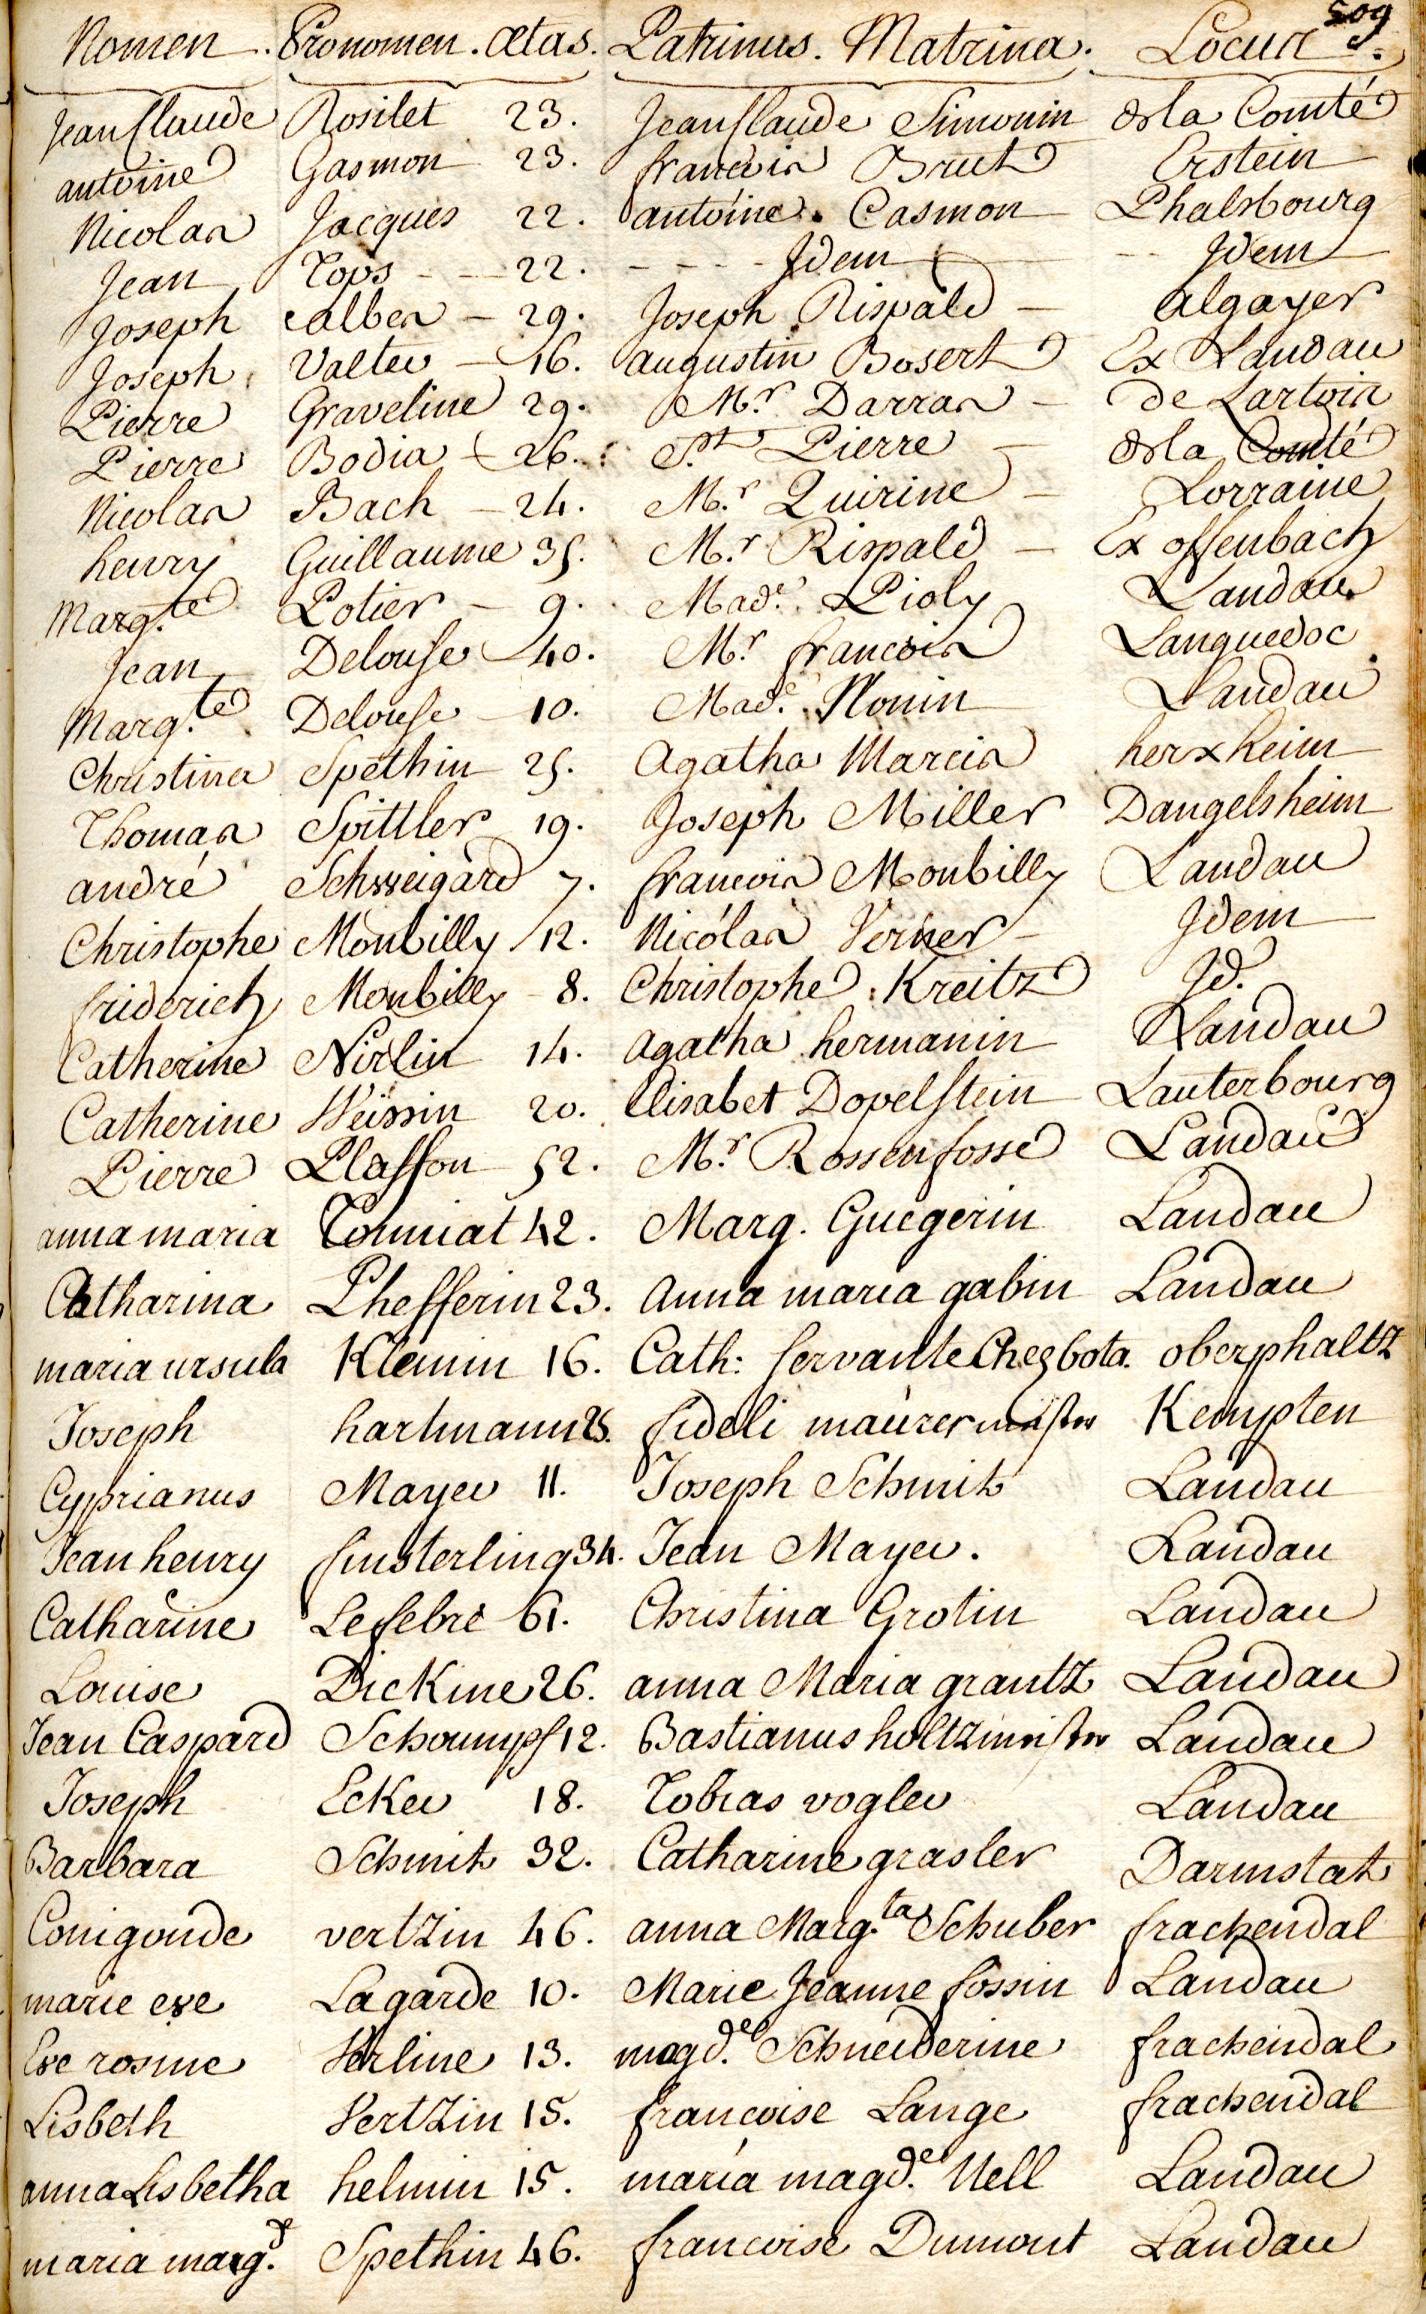 509
Nomen. Pronomen. Œtas. Patrinus. Matrina. Locus.
Jean Claude Rosilet 23. Jean Claude Simonin de la Comté
antoine Gasmon 23. francois Brut Erstein
Nicolas Jacques 22. antoine Casmon Phalsbourg
Jean Tops 22. Idem Idem
Joseph alber 29. Joseph Rispald algayer
Joseph Valter 16. augustin Bosert Ex Landau
Pierre Graveline 29. Mr. Darras de Lartois
Pierre Bodia 26. St Pierre de la Comté
Nicolas Bach 24. Mr. Quirine Lorraine
henry Guillaume 35. Mr. Rispald Ex offenbach
Marg.te Potier 9. Made. Pioly Landau
Jean Delouse 40. Mr. francois Languedoc
Marg.te Delouse 10. Made. Nonin Landau
Christina Spethin 25. Agatha Marcis herxheim
Thomas Spittler 19. Joseph Miller Dangelsheim
andré Schweigard 7. francois Monbilly Landau
Christophe Monbilly 12. Nicolas Verner Idem
friderich Monbilly 8. Christophe Kreitz Id.
Catherine Nirlin 14. Agatha hermanin Landau
Catherine Weissin 20. Elisabet Dopelstein Lauterbourg
Pierre Plasson 52. Mr. Rossenfosse Landau
anna maria Tonniat 42. Marg. Guegerin Landau
Catharina Phefferin 23. Anna maria gabin Landau
maria ursula Klemin 16. Cath: servante Chez bota. oberphaltz
Joseph hartmann 25. fideli maurer meister Kempten
Cyprianus Mayer 11. Joseph Schmit Landau
Jean henry finsterling 34. Jean Mayer. Landau
Catharine Lefebre 61. Christina Grotin Landau
Louise Dickine 26. anna Maria grantz Landau
Jean Caspard Schoumpf 12. Bastianus holtzmeister Landau
Joseph Ecker 18. Tobias vogler Landau
Barbara Schmit 32. Catharine grasler Darmstat
Conigonde vertzin 46. anna Marg.ta Schuber frackendal
marie eve Lagarde 10. Marie Jeanne fossin Landau
Eve rosine Verline 13. magd.e Schneiderine frackendal
Lisbeth Vertzin 15. francoise Lange frackendal
anna Lisbetha helmin 15. maria magd.e Nell Landau
maria marg. Spethin 46. francoise Dumont Landau